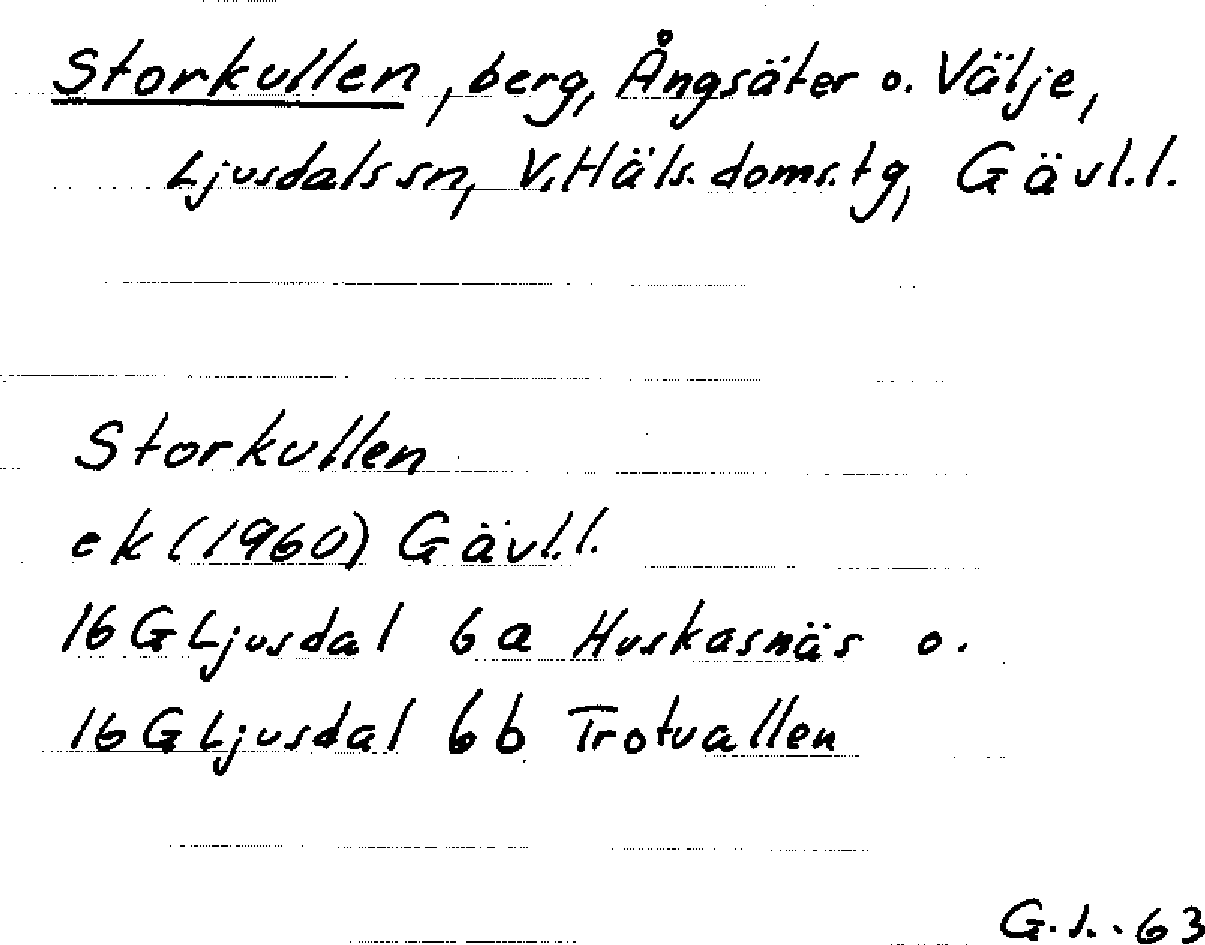 Storkullen, berg, Ångsäter o. Välje,
Ljusdals sn, V. Häls. doms. tg, Gävl. l.
Storkullen
ek (1960) Gävl. l.
16G Ljusdal 6a Huskasnäs o.
16G Ljusdal 6b Trotvallen
G. I. - 63